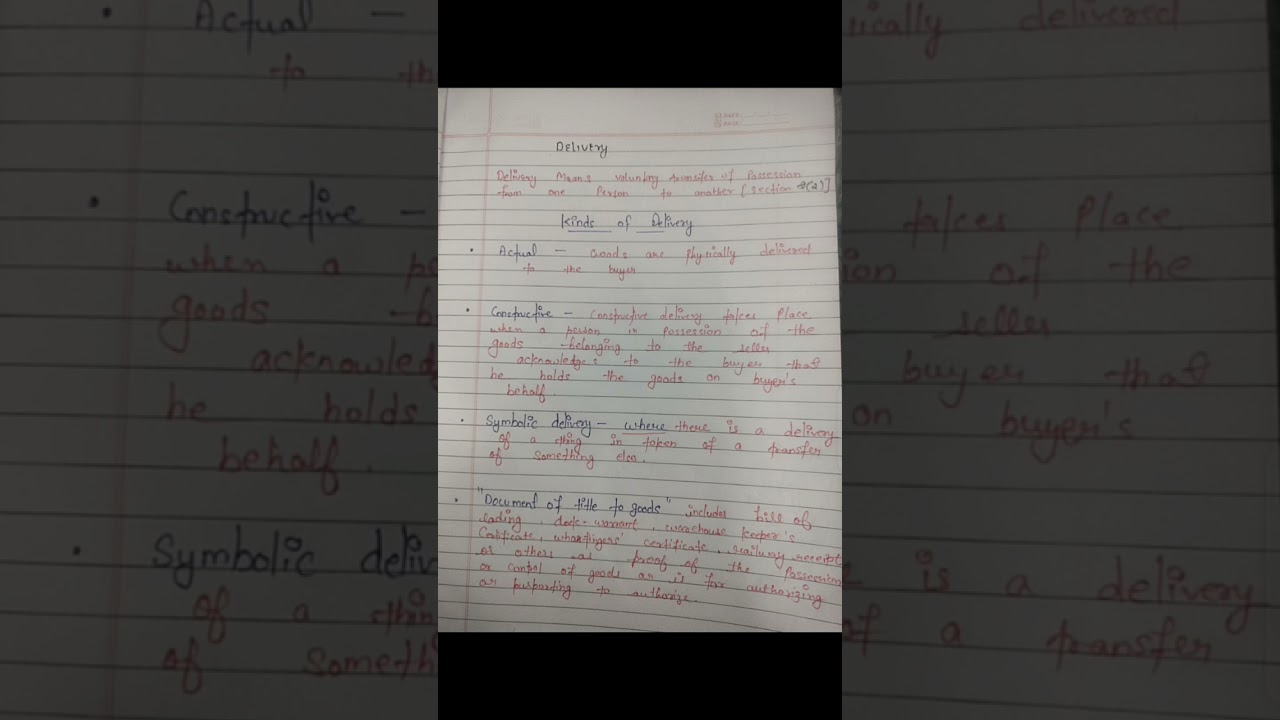 Delivery
Delivery Means voluntary transfer of Possession
from one Person to another [Section 2(2)]
Kinds of Delivery
• Actual – Goods are physically delivered
to the buyer
• Constructive – Constructive delivery takes Place
when a person in possession of the
goods belonging to the seller
acknowledges to the buyer that
he holds the goods on buyer's
behalf.
• Symbolic delivery – where there is a delivery
of a thing in token of a transfer
of something else.
• "Document of title to goods" includes bill of
lading, dock-warrant, warehouse keeper's
Certificate, wharfingers' certificate, railway receipt
or others as proof of the Possession
or control of goods or is for authorizing
or purporting to authorize.